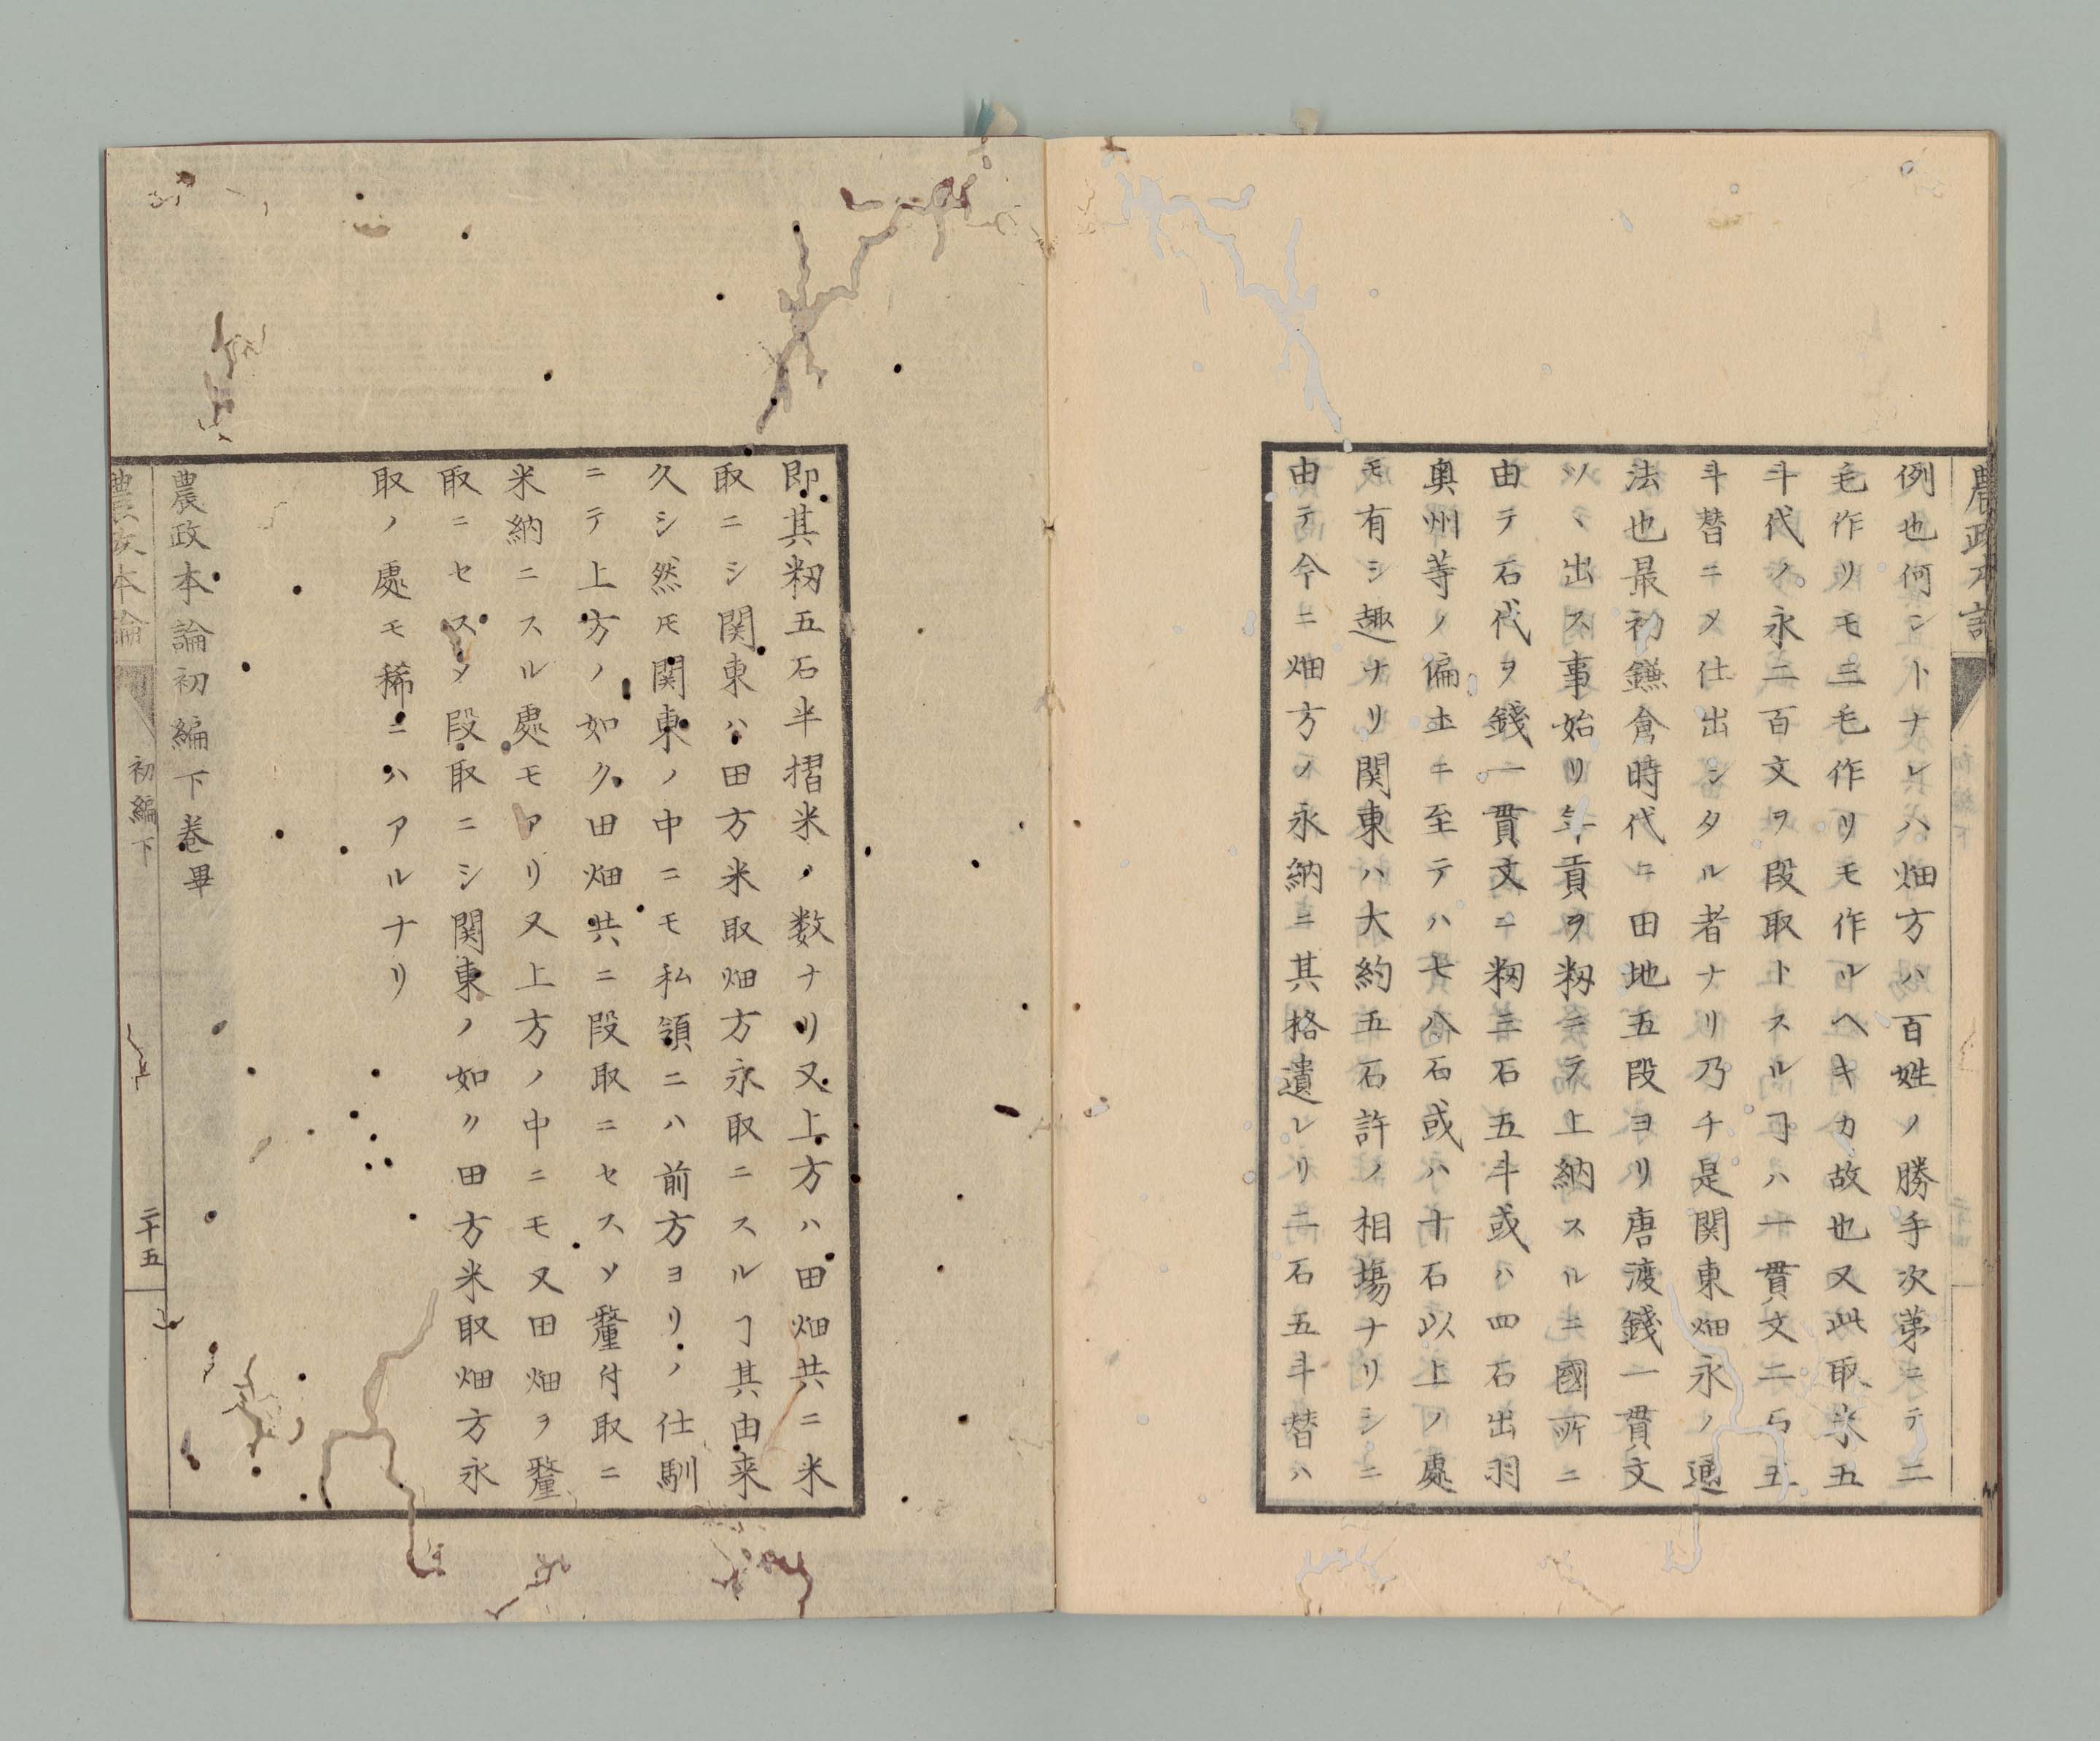 農政本論
例也何ントナレハ畑方ハ百姓ノ勝手次第ニテ二
毛作リモ三毛作リモ作ルヘキカ故也又此取永五
斗代ノ永二百文ヲ段取トスルヿハ一貫文二石五
斗替ニメ仕出シタル者ナリ乃チ是関東畑永ノ通
法也最初鎌倉時代ニ田地五段ヨリ唐渡錢一貫文
ツヽ出ス事始リ年貢ヲ籾ニテ上納スルニ國所ニ
由テ石代ヲ錢一貫文ニ籾三石五斗或ハ四石出羽
奥州等ノ偏土ニ至テハ七八石或ハ十石以上ノ處
モ有シ趣ナリ関東ハ大約五石許ノ相場ナリシニ
由テ今ニ畑方ノ永納ニ其格遺レリ二石五斗替ハ
即其籾五石半摺米ノ数ナリ又上方ハ田畑共ニ米
取ニシ関東ハ田方米取畑方永取ニスルヿ其由来
久シ然𪜈関東ノ中ニモ私領ニハ前方ヨリノ仕馴
ニテ上方ノ如ク田畑共ニ段取ニセスメ釐付取ニ
米納ニスル處モアリ又上方ノ中ニモ又田畑ヲ釐
取ニセスメ段取ニシ関東ノ如ク田方米取畑方永
取ノ處モ稀ニハアルナリ
農政本論初編下巻畢
農政本論
初編下
二十五